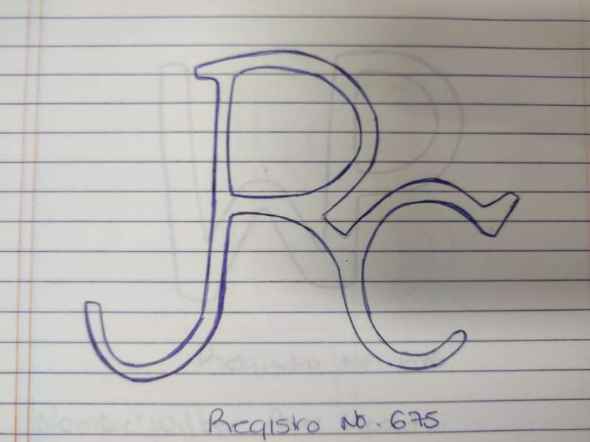 RC
Registro No. 675